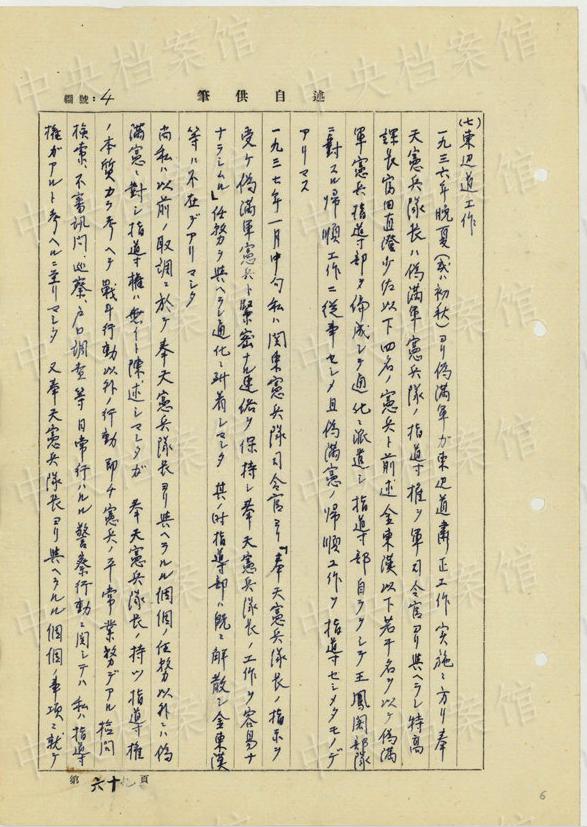 編號：4
述自供筆
(七)東辺道工作
一九三六年晩夏(或ハ初秋)ヨリ偽満軍ガ東辺道粛正工作ノ実施ニ方リ奉
天憲兵隊長ハ偽満軍憲兵隊ノ指導権ヲ軍司令官ヨリ與ヘラレ特高
課長富田直澄少佐以下四名ノ憲兵ト前述金東漢以下若干名ヲ以ケ偽満
軍憲兵指導部ヲ偏成シテ通化ニ派遣シ指導部自ラヲシテ王鳳閣部隊
ニ対スル帰順工作ニ従事セシメ且偽満憲ノ帰順工作ヲ指導セシメタモノデ
アリマス
一九三七年一月中旬私ハ関東憲兵隊司令官ヨリ「奉天憲兵隊長ノ指示ヲ
受ケ偽満軍憲兵ト緊密ナル連絡ヲ保持シ奉天憲兵隊長ノ工作ヲ容易ナ
ナラシムル」任務ヲ與ヘラレ通化ニ到着シマシタ 其ノ時指導部ハ既ニ解散シ金東漢
等ハ不在デアリマシタ
尚私ハ以前ノ取調ニ於テ奉天憲兵隊長ヨリ與ヘラルル個個ノ任務以外ニハ偽
満憲ニ対シ指導権ハ無イト陳述シマシタガ 奉天憲兵隊長ノ持ツ指導権
ノ本質カラ考ヘテ戦斗行動以外ノ行動即チ憲兵ノ平常業務デアル検問
検索、不審訊問、巡察、戸口調査等日常行ハルル警察行動ニ関シテハ私ハ指導
権ガアルト考ヘルニ至リマシタ 又奉天憲兵隊長ヨリ與ヘラルル個個ノ事項ニ就テ
第 六十 頁
6
中央档案馆